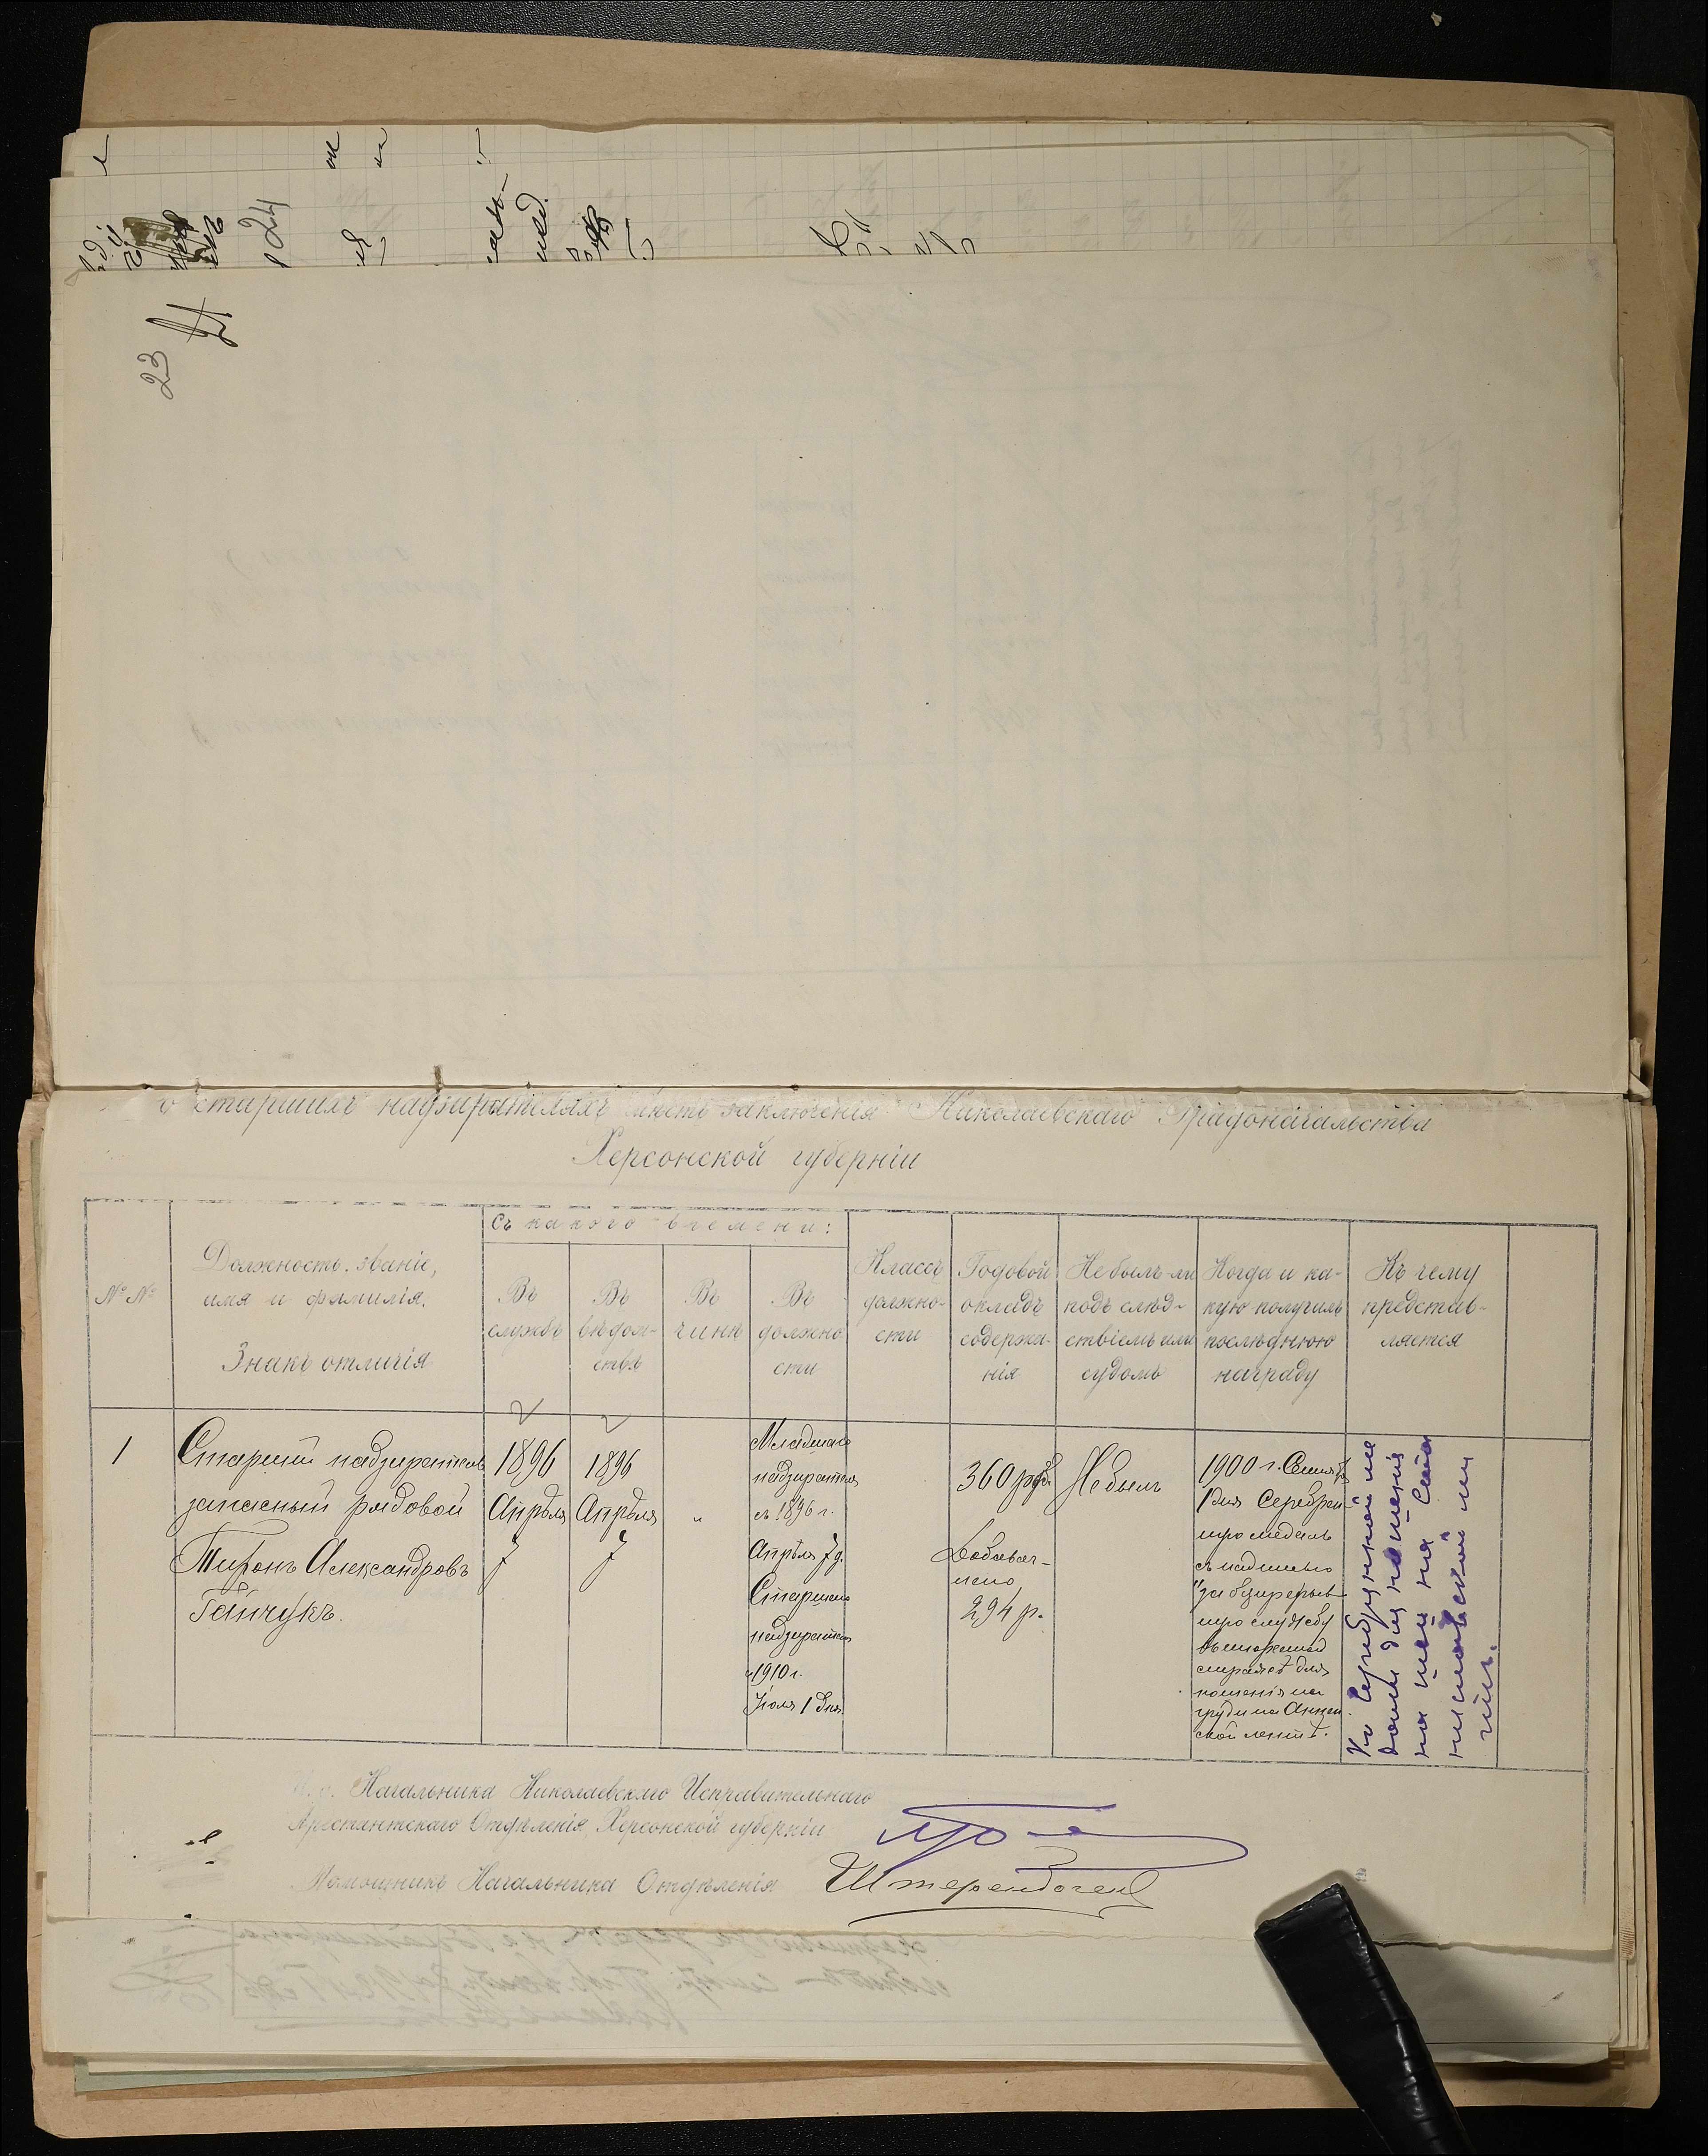 24
23
о старшихъ надзирателяхъ мѣстъ заключенія Николаевскаго Градоначальства
Херсонской губерніи
№ №
Должность, званіе,
имя и фамилія.
Знакъ отличія
Съ какого времени:
Въ
службѣ
Въ
вѣдом-
ствѣ
Въ
чинѣ
Въ
должно
сти
Классъ
должно-
сти
Годовой
окладъ
содержа-
нія
Не былъ-ли
подъ слѣд-
ствіемъ или
судомъ
Когда и ка-
кую получилъ
послѣднюю
награду
Къ чему
представ-
ляется
1
Старшій надзиратель
запасный рядовой
Тифонъ Александровъ
Гайчукъ.
1896
Апрѣля
7
1896
Апрѣля
7
"
Младшаго
надзирателя
съ 1896 г.
Апрѣля 7 д.
Старшаго
надзирателя
1910 г.
Іюля 1 дня
360 руб.
Добавоч-
наго
294 р.
Не былъ
1900 г. Сентяб
1 дня Серебрен-
ную медаль
съ надписью
"за безпорыв
ную службу
въ тюремной
стражѣ" для
ношенія на
груди на Аннен-
ской лентѣ.
Къ серебрянной ме
дали для ношенія
на шеѣ на Ста
ниславской ле
нтѣ.
И. о. Начальника Николаевскаго Исправительнаго
Арестантскаго Отдѣленія Херсонской губерніи
Помощникъ Начальника Отдѣленія